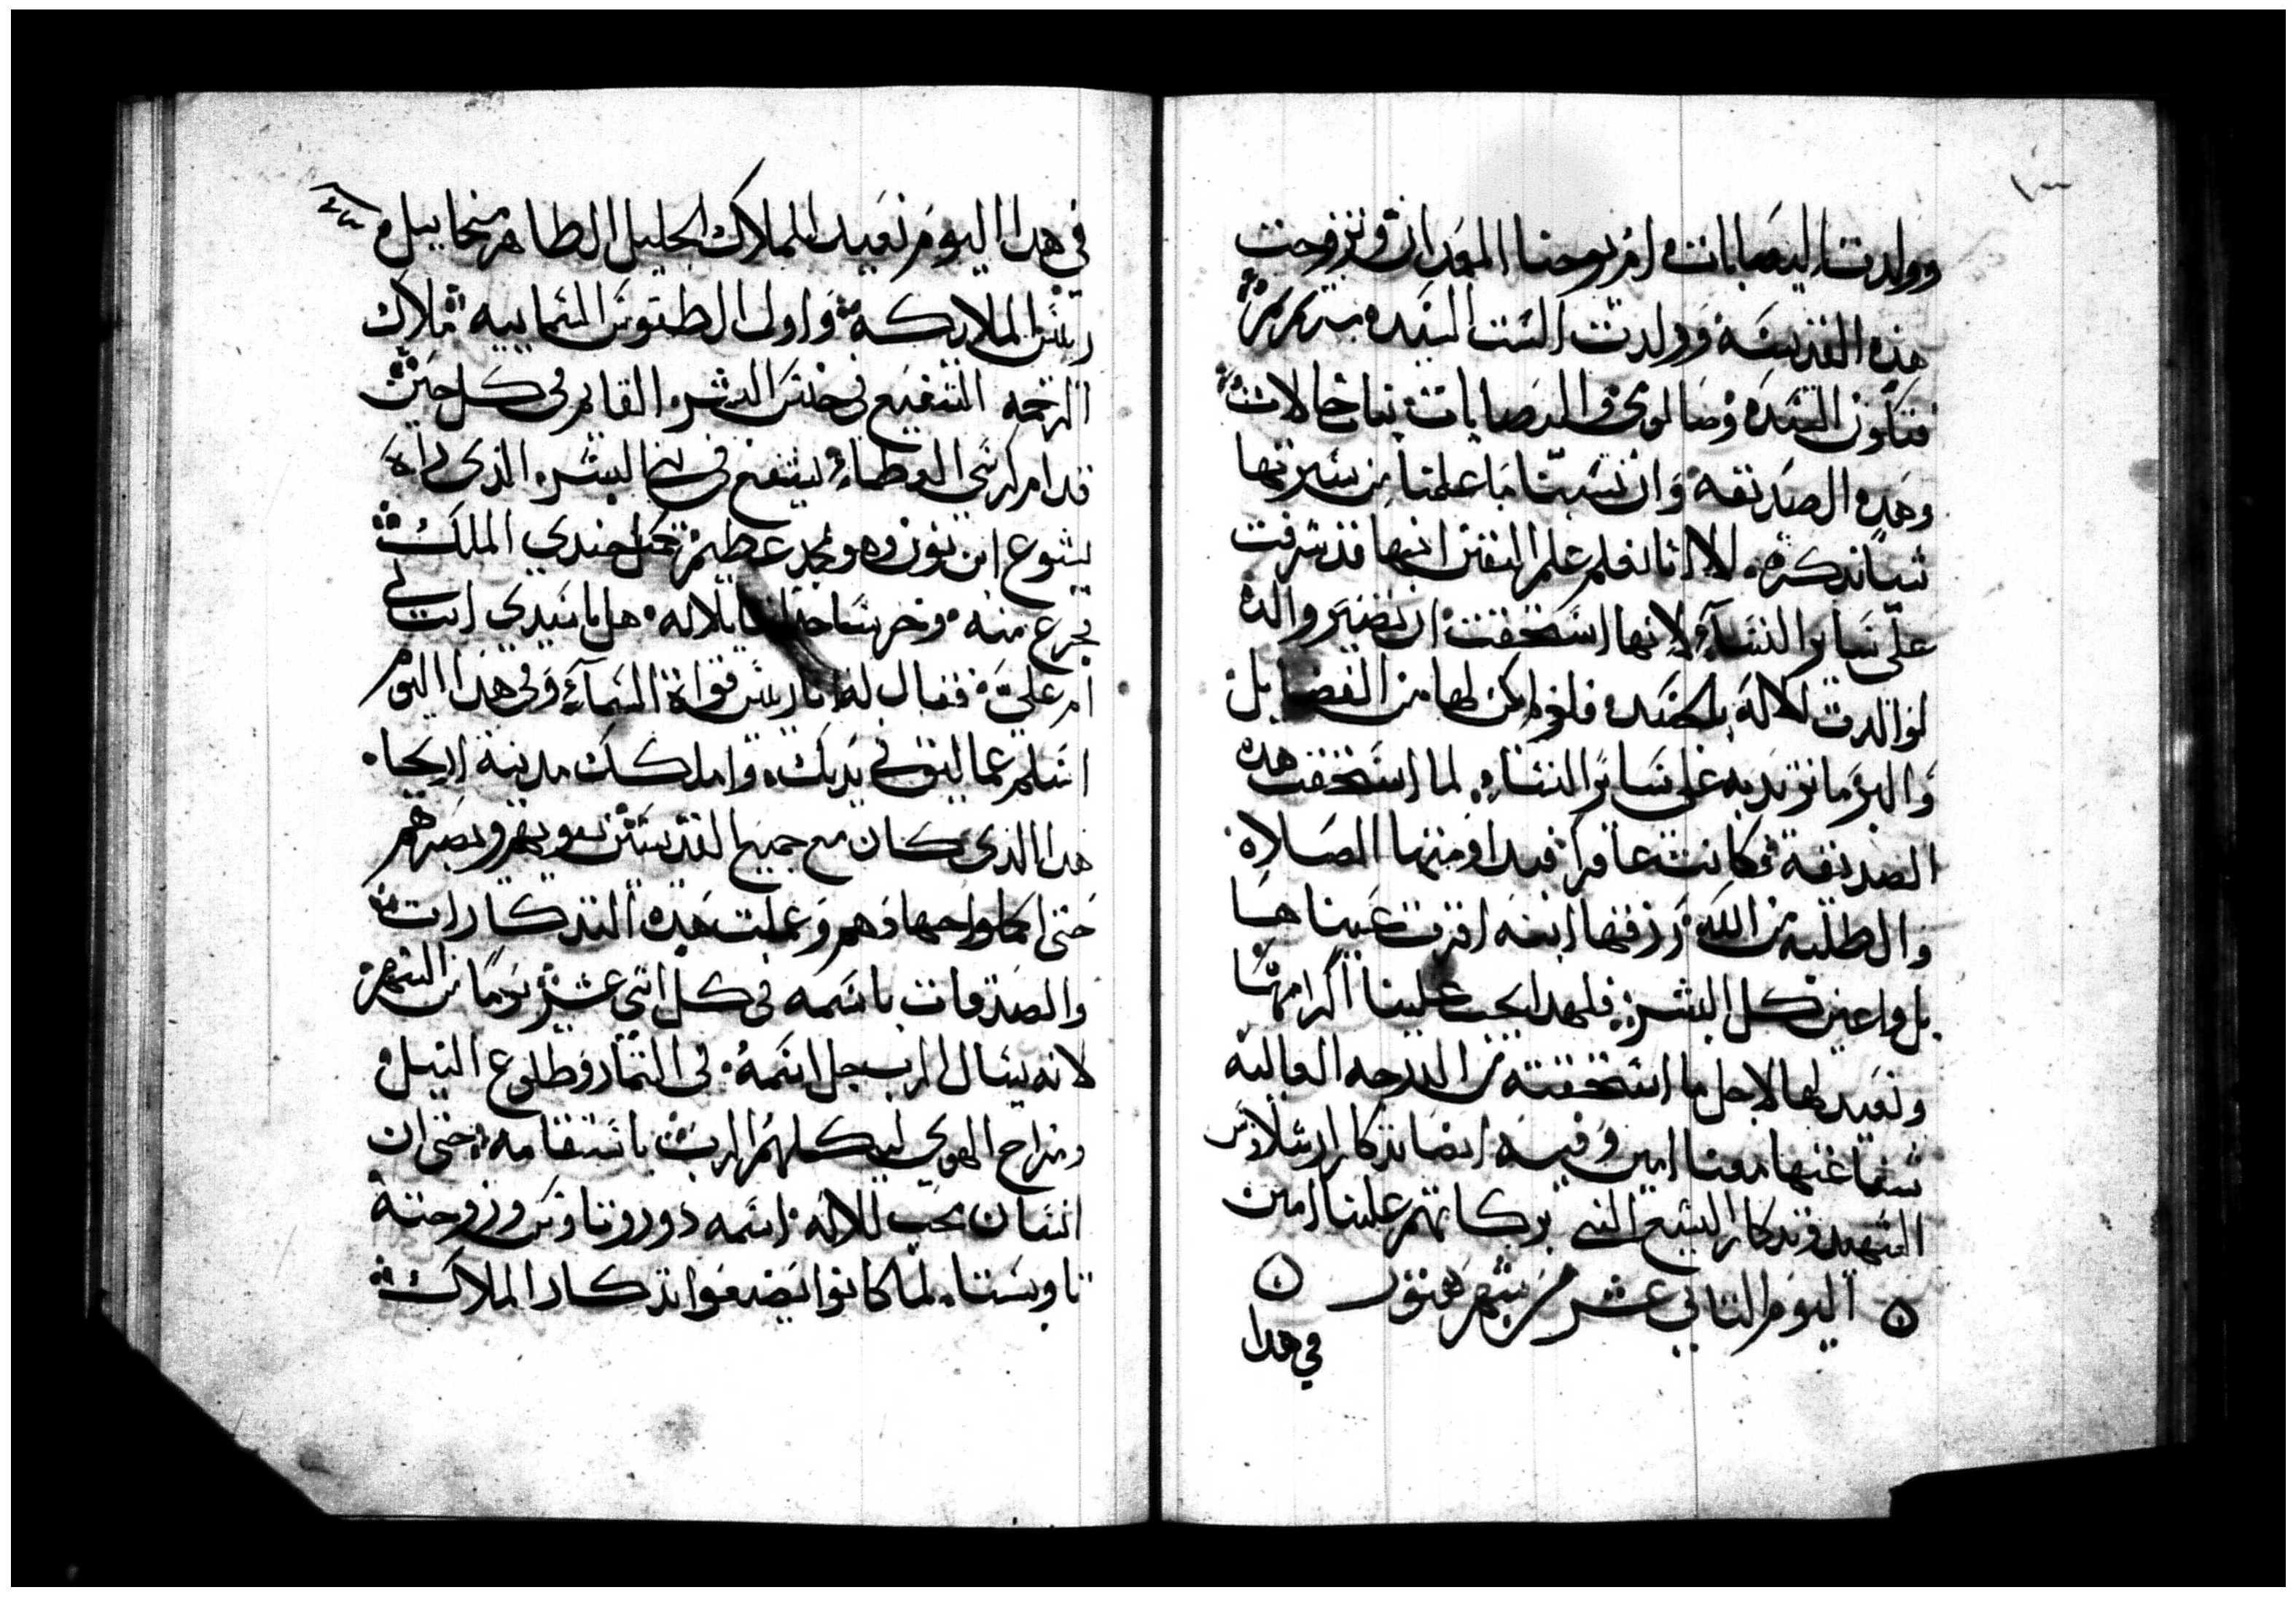 وولدت اليصابات ام يوحنا المعمدان وتزوجت
هذه القديسه وولدت الست السيده مرتمريم
فتكون السيده وصالومي واليصابات بنات خالات
وهده الصديقه وان نسينا ما علمنا من سيرتها
شيا نذكره الا اننا نعلم علم اليقين انها قد شرفت
علي ساير النساء لانها استحقت ان تصير والدة
لوالدت الاله بالجسد فلو لم يكن لها من الفضايل
والبر ما تزيد به على ساير النساء لما استحقت هده
الصديقه وكانت عاقرا فبداومتها الصلاة
والطلبه من الله رزقها ابنه اقرت عيناها
بل واعين كل البشر فلهدا يجب علينا اكرامها
ونعيد لها لاجل ما استحقته من الدرجه العاليه
شفاعتها معنا امين وفيه ايضا تذكار ارشلاوس
الشهيد وتدكار اليشع النبي بركاتهم علينا امين
اليوم التاني عشر من شهر هتور
في هدا
في هدا اليوم نعيد للملاك الجليل الطاهر ميخاييل
ريس الملايكه واول الطقوس السماييه ملاك
الرحمه الشفيع في جنس البشر القايم في كل حين
قدام كرسي العظمه ليشفع في البشر الذي راه
يشوع ابن نون وهو بمجد عظيم كجندي الملك
فجزع منه وخر ساجدا قايلا له هل يا سيدي انت لي
ام علي فقال له انا ريس قواة السماء وفي هدا اليوم
اسلم عماليق في يديك واملكك مدينة اريحا
هدا الذي كان مع جميع القديسين يقويهم ويصبرهم
حتى اكملوا جهادهم وعملت هده التدكارات
والصدقات باسمه في كل اتني عشر يوما من الشهر
لانه يسال الرب جل اسمه في التمار وطلوع النيل
ومزاج الهوي ليكملهم الرب باستقامه حتى ان
انسان محب للاله اسمه دوروتاوس وزوجته
تاوبستا لما كانوا يصنعوا تدكار الملاك